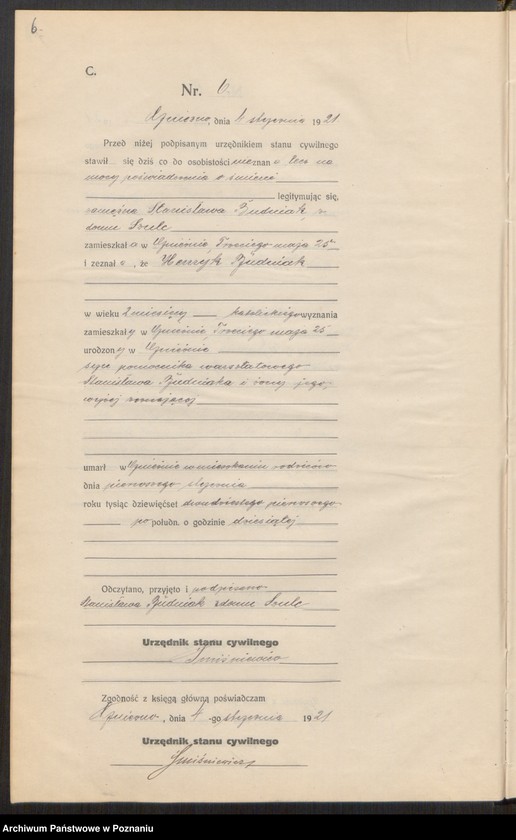 6.
C.
Nr. 6.
Gniezno, dnia 4 stycznia 1921
Przed niżej podpisanym urzędnikiem stanu cywilnego
stawił się dziś co do osobistości nieznana lecz na
mocy poświadczenia o śmierci
legitymując się,
zamężna Stanisława Budniak, z
domu Szulc
zamieszkała w Gnieźnie, Trzeciego maja 25
i zeznała, że Henryk Budniak
w wieku 2 miesięcy katolickiego wyznania
zamieszkały w Gnieźnie, Trzeciego maja 25
urodzony w Gnieźnie
syn pomocnika warsztatowego
Stanisława Budniaka i żony jego,
wyżej zeznającej
umarł w Gnieźnie w mieszkaniu rodziców
dnia pierwszego stycznia
roku tysiąc dziewięćset dwudziestego pierwszego
po połudn. o godzinie dziesiątej
Odczytano, przyjęto i podpisano
Stanisława Budniak z domu Szulc
Urzędnik stanu cywilnego
Zgodność z księgą główną poświadczam
Gniezno, dnia 4-go stycznia 1921
Urzędnik stanu cywilnego
Archiwum Państwowe w Poznaniu